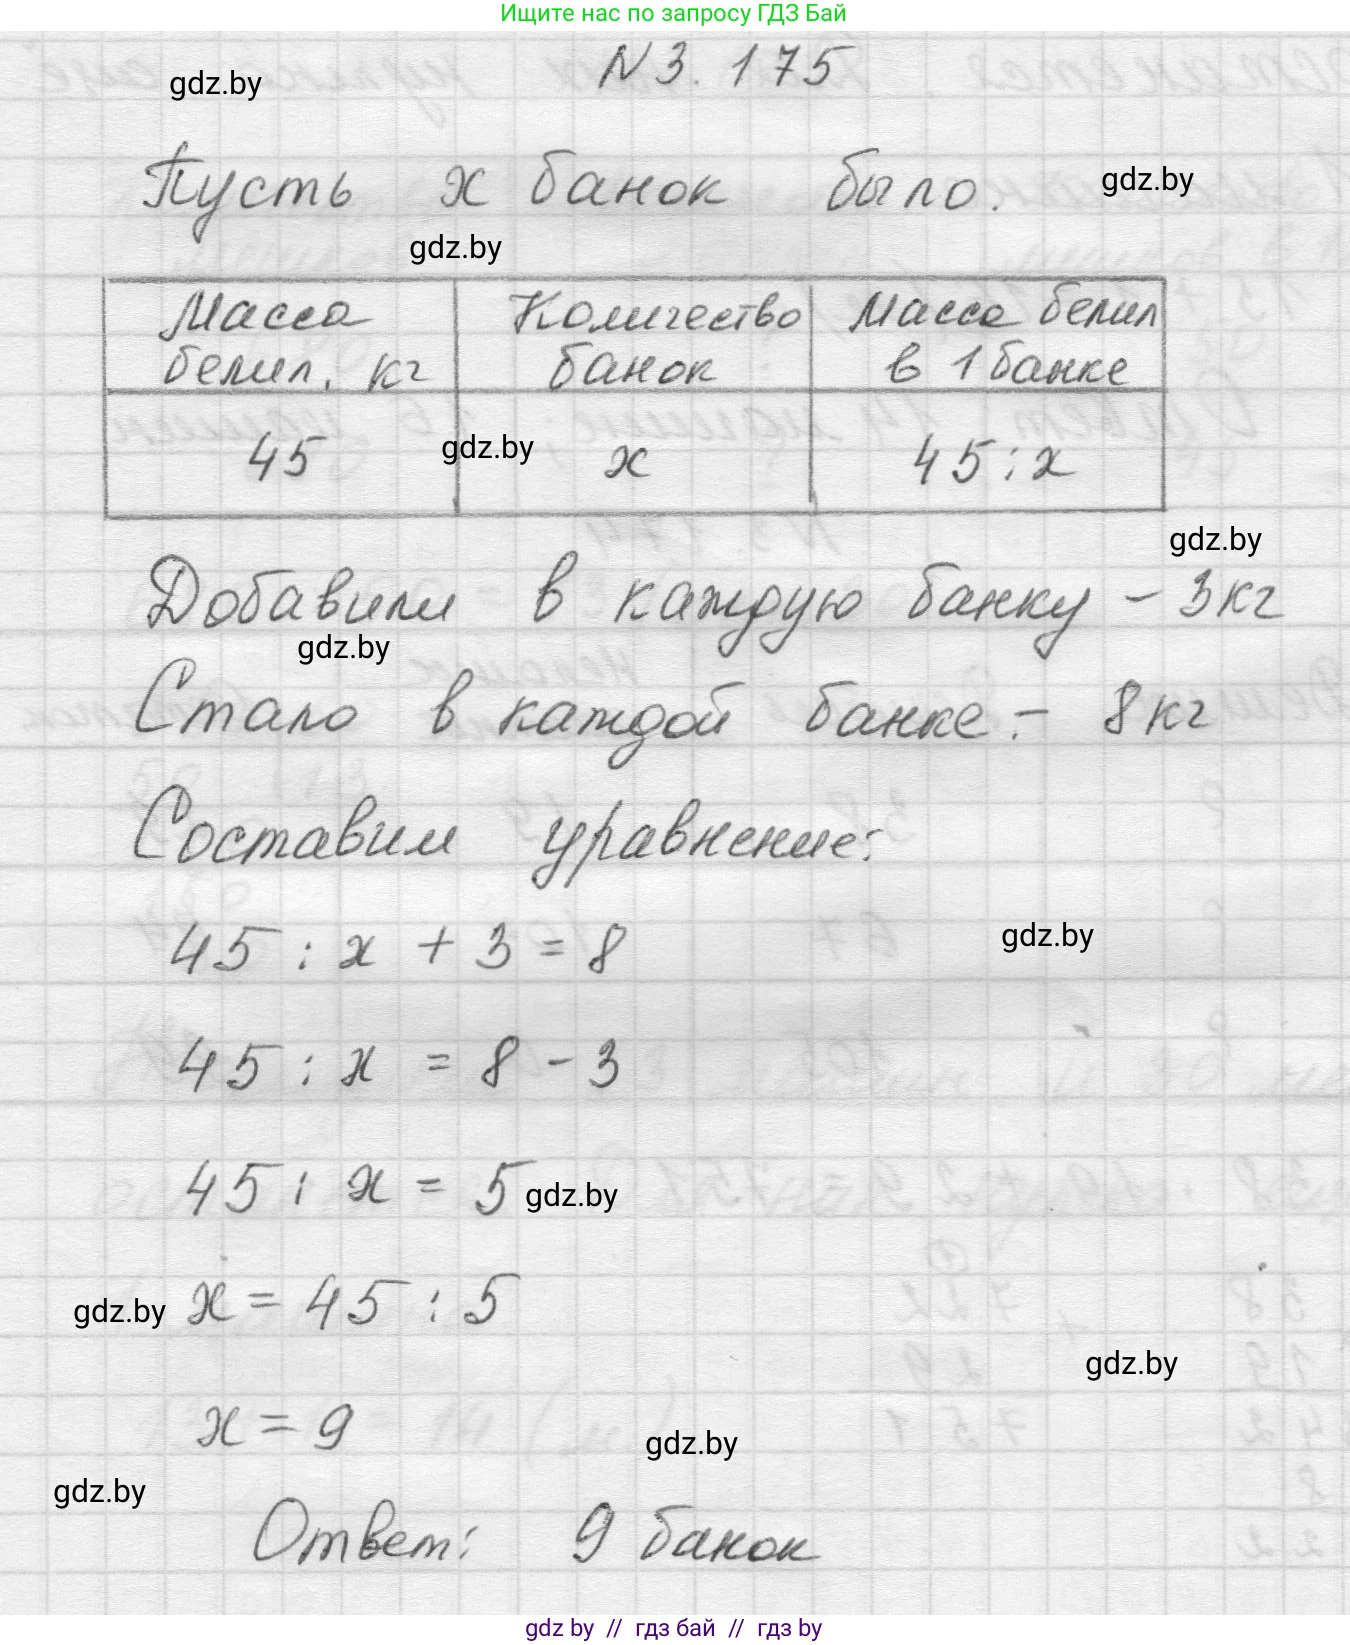 Ищите нас по запросу ГДЗ Бай
N 3. 175
gdz.by
Пусть х банок было.
gdz.by
gdz.by
Масса белил, кг
Количество банок
Масса белил в 1 банке
45
gdz.by
х
45 : х
gdz.by
Добавили в каждую банку – 3 кг
gdz.by
Стало в каждой банке – 8 кг
Составим уравнение:
45 : х + 3 = 8
gdz.by
45 : х = 8 – 3
45 : х = 5
gdz.by
х = 45 : 5
gdz.by
gdz.by
х = 9
gdz.by
gdz.by
Ответ: 9 банок
gdz by // гдз бай // гдз by